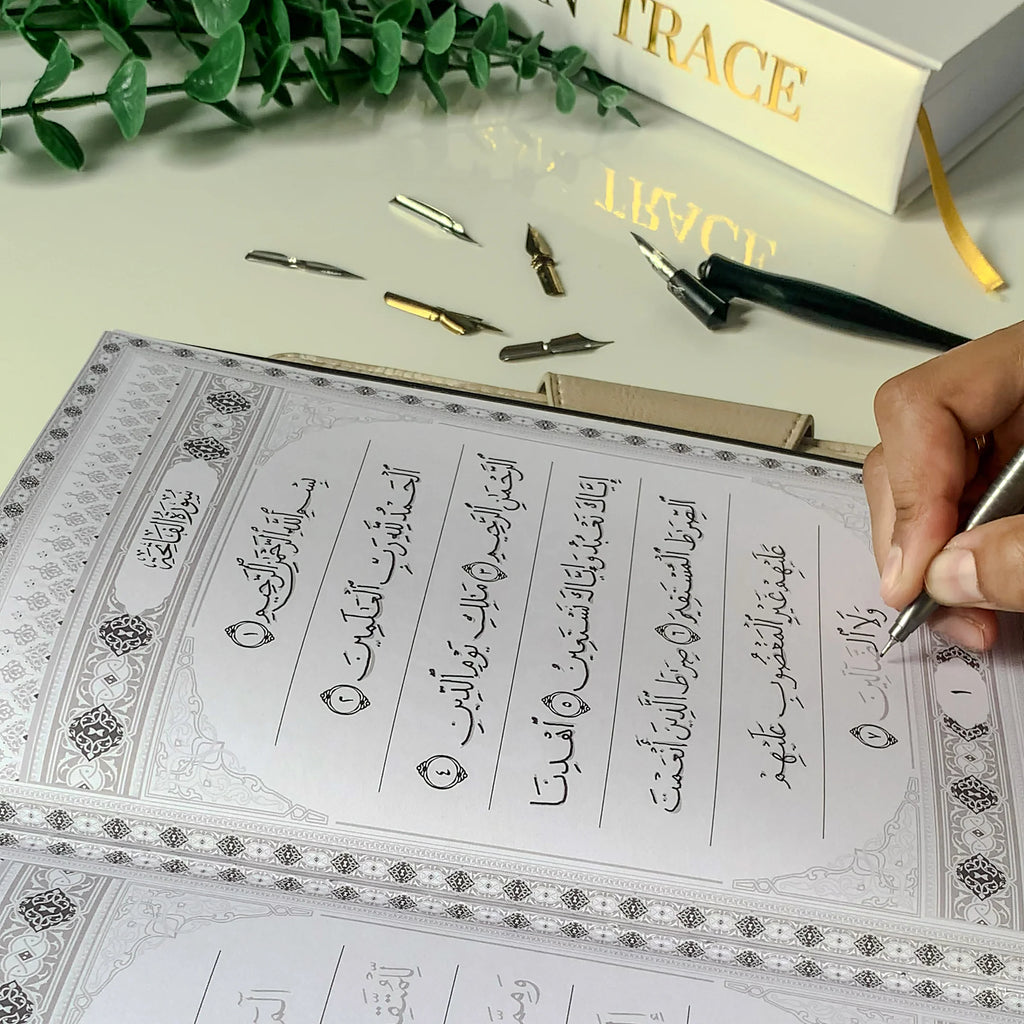 TRACE
سُورَةُ الفَاتِحَةِ
بِسْمِ ٱللَّهِ ٱلرَّحْمَٰنِ ٱلرَّحِيمِ ١
ٱلْحَمْدُ لِلَّهِ رَبِّ ٱلْعَٰلَمِينَ ٢
ٱلرَّحْمَٰنِ ٱلرَّحِيمِ ٣ مَٰلِكِ يَوْمِ ٱلدِّينِ ٤
إِيَّاكَ نَعْبُدُ وَإِيَّاكَ نَسْتَعِينُ ٥ ٱهْدِنَا
ٱلصِّرَٰطَ ٱلْمُسْتَقِيمَ ٦ صِرَٰطَ ٱلَّذِينَ أَنْعَمْتَ
عَلَيْهِمْ غَيْرِ ٱلْمَغْضُوبِ عَلَيْهِمْ
وَلَا ٱلضَّآلِّينَ ٧
١